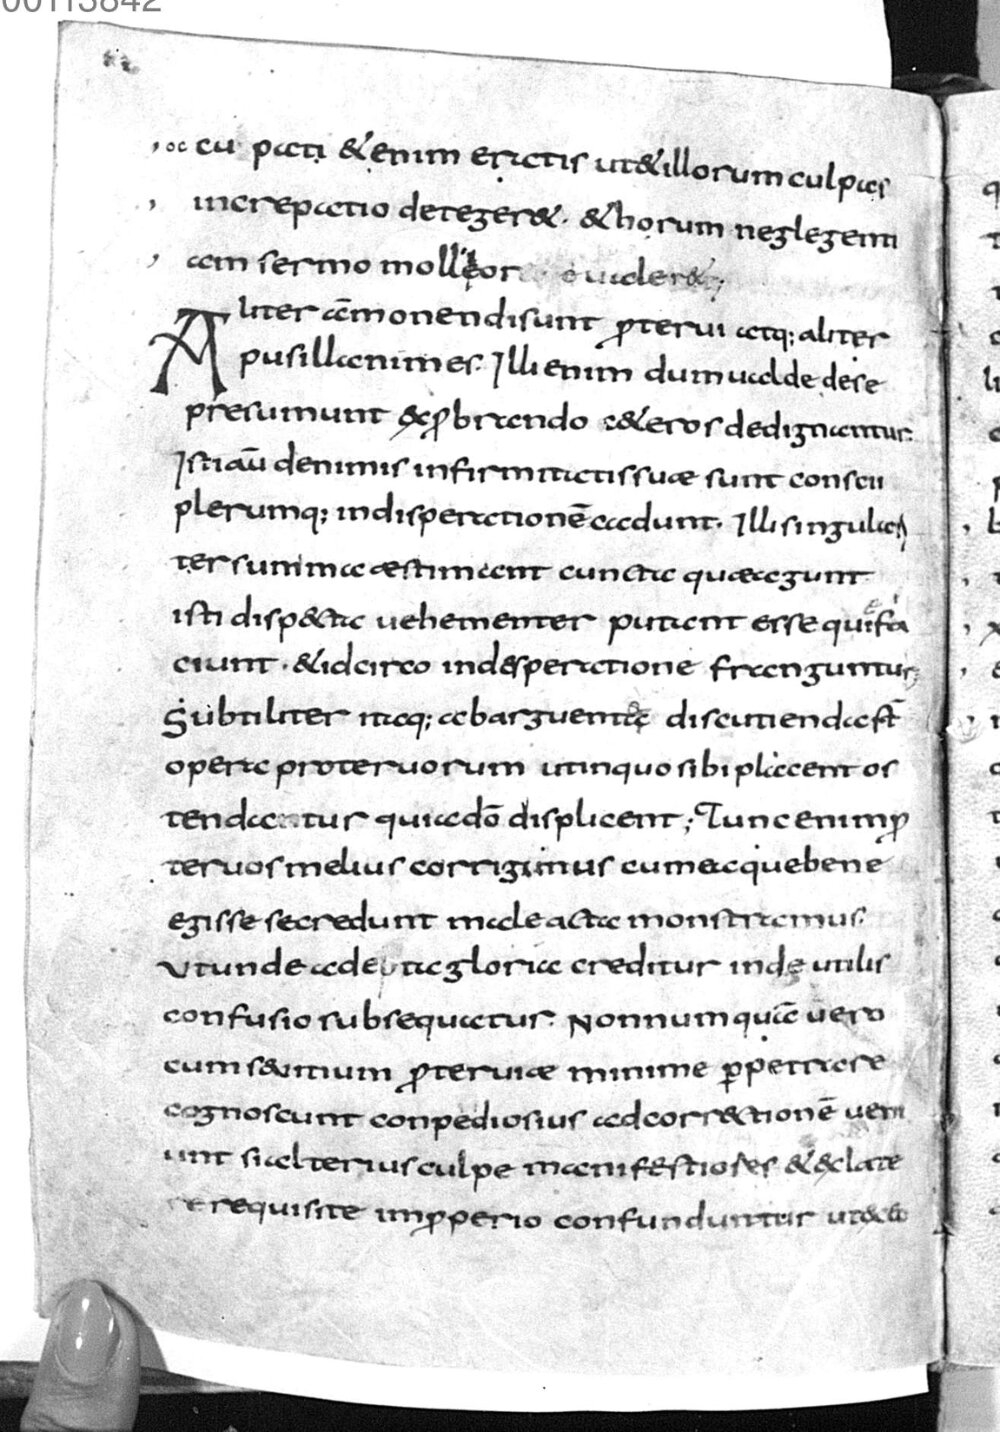 00113842
occupati & enim eratis ut & illorum culpas
increpatio deteger&. & horum neglegenti
am sermo mollior uider&;
Aliter ām̄onendi sunt p̄terui atq; aliter
pusillanimes. Illi enim dum ualde de se
presumunt exp̄brando c&eros dedignantur.
Isti aū de nimis infirmitatis suae sunt conscii
plerumq; in disperationē cadunt. Illi singulari
ter summa aestimant cuncta quae agunt
isti disp&cta uehementer putant esse que fa
ciunt. & idcirco in desperatione franguntur;
Subtiliter itaq; ab arguente discutienda est̄
opera proteruorum ut in quo sibi placent os
tendantur quia dō displicent; Tunc enim p̄
teruos melius corrigimus cum ea que bene
egisse se credunt male acta monstramus.
Ut unde adepta gloria creditur inde utilis
confusio subsequatur. Nonnumquā uero
cum se uitium p̄teruiae minime p̄petrare
cognoscunt conpediosius ad corr&tionē ueni
unt si alterius culpe manifestiores & ex late
re requisite imp̄perio confunduntur ut ex eo